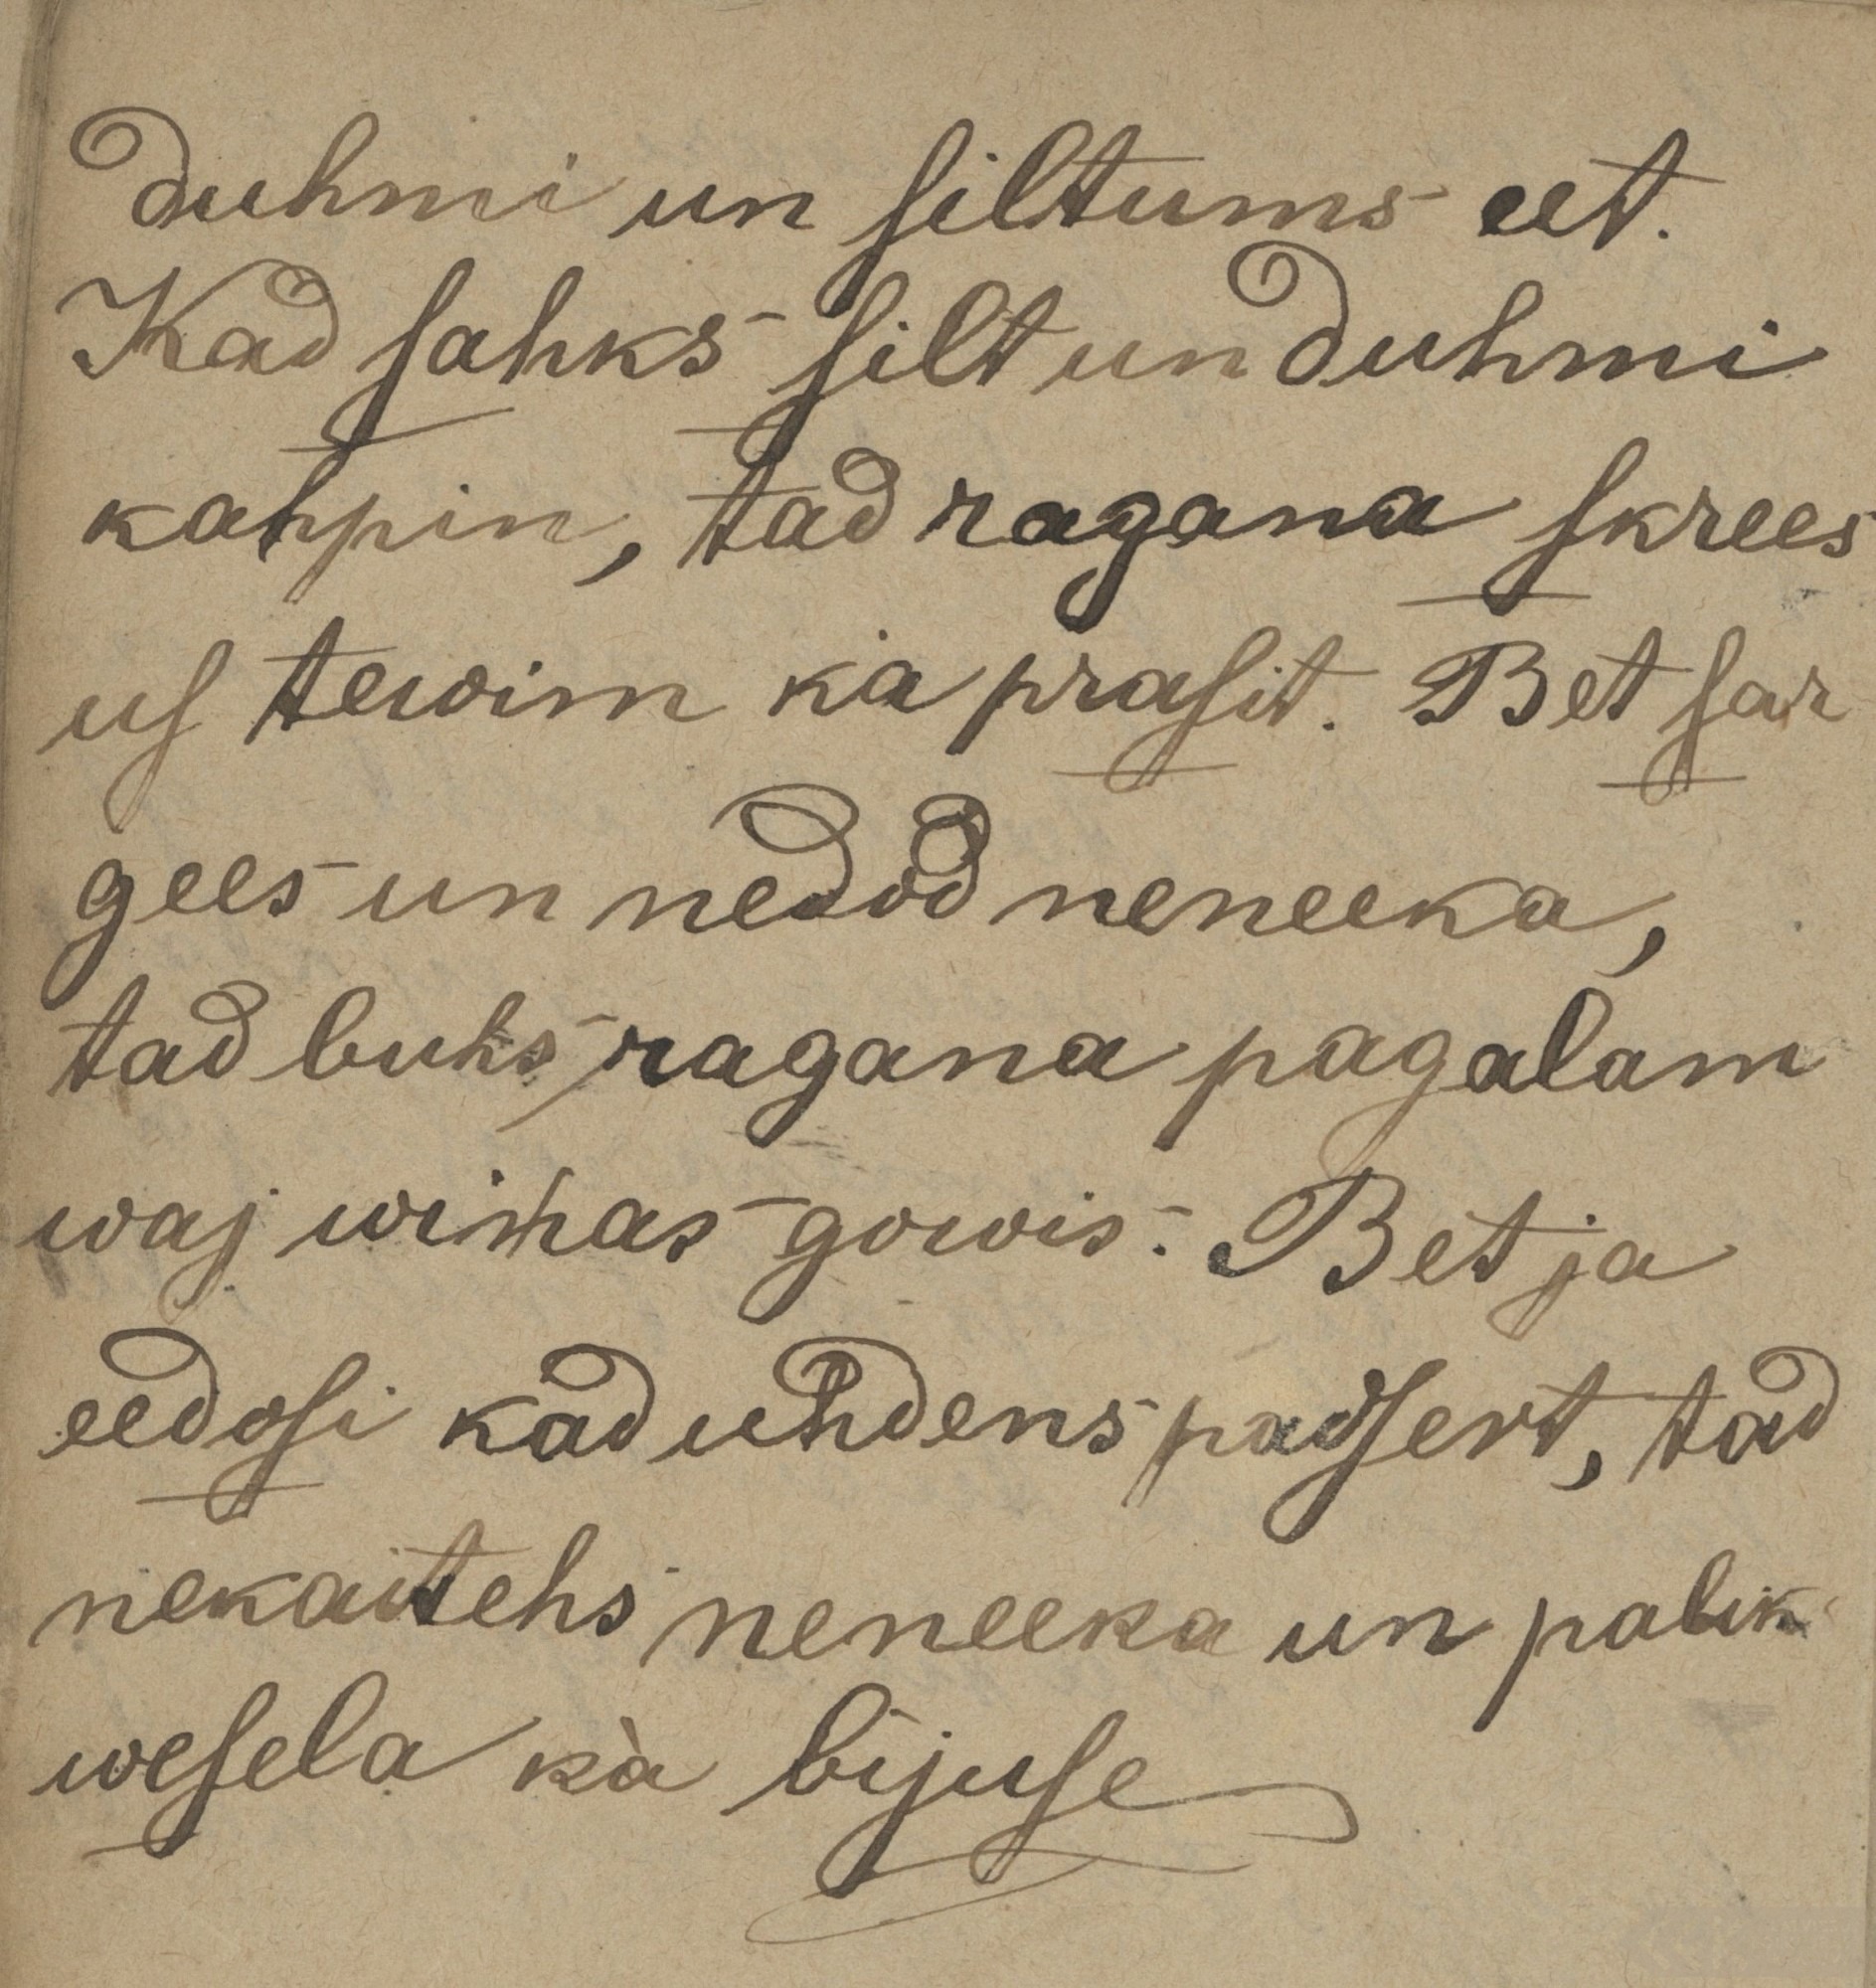 duhmi un ſiltums eet.
Kad ſahks ſilt un duhmi
kahpin, tad ragana ſkrees
uſ tewim kà praſit. Bet ſar
gees un nedod neneeka,
tad buhs ragana pagalam
waj wiņas gowis. Bet ja
eedoſi kad uhdens padſert, tad
nekaitehs neneeka un paliks
weſela kà bijuſe